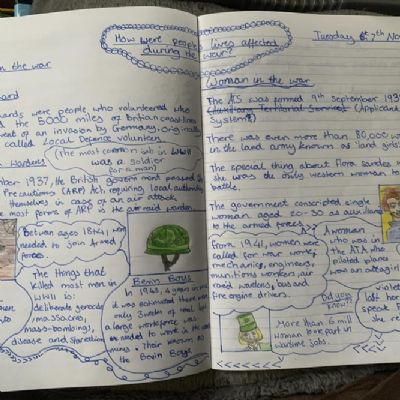 How were people's
lives affected
during the war?
Tuesday 7th Nov
n the war
ard
ards were people who volunteered who
the 5000 miles of British coastlines
ent of an invasion by Germany. originally
called Local Defence volunteers
(The most common job in WWII
was a soldier
for a man)
Wardens
mber 1937, the British government passed the
Precautions (ARP) Act, requiring local authority
themselves in case of an air attack
e most forms of ARP is the air raid warden
Betwen ages 18 & 41 were
needed to join Armed
forces.
The things that
killed most men in
WWII is:
deliberate genocide
(massacres,
mass-bombing),
disease and starvation
Bevin Boys
1943, 4 years in
it was estimated there were
only 3 weeks of coal left
a large workforce was
needed to work in the
mines. Their known as
the Bevin Boys
Woman in the war
The ATS was formed 9th September 193
Territorial Service (Applicant
System)
There was even more than 80,000 wo
in the land army known as 'land girls'
The special thing about Flora Sandes
she was the only western woman to
battle.
The government conscripted single
woman aged 20-30 as auxiliaries
to the armed forces
From 1941, women were
called for war work,
mechanics, engineers,
munitions workers, air
raid wardens, bus and
fire engine drivers.
A woman
who was in
the ATA who
piloted planes
was an ata girl
Did you
know?!
More than 6 mill
woman took part in
wartime jobs.
violet
left her
speak F
She re